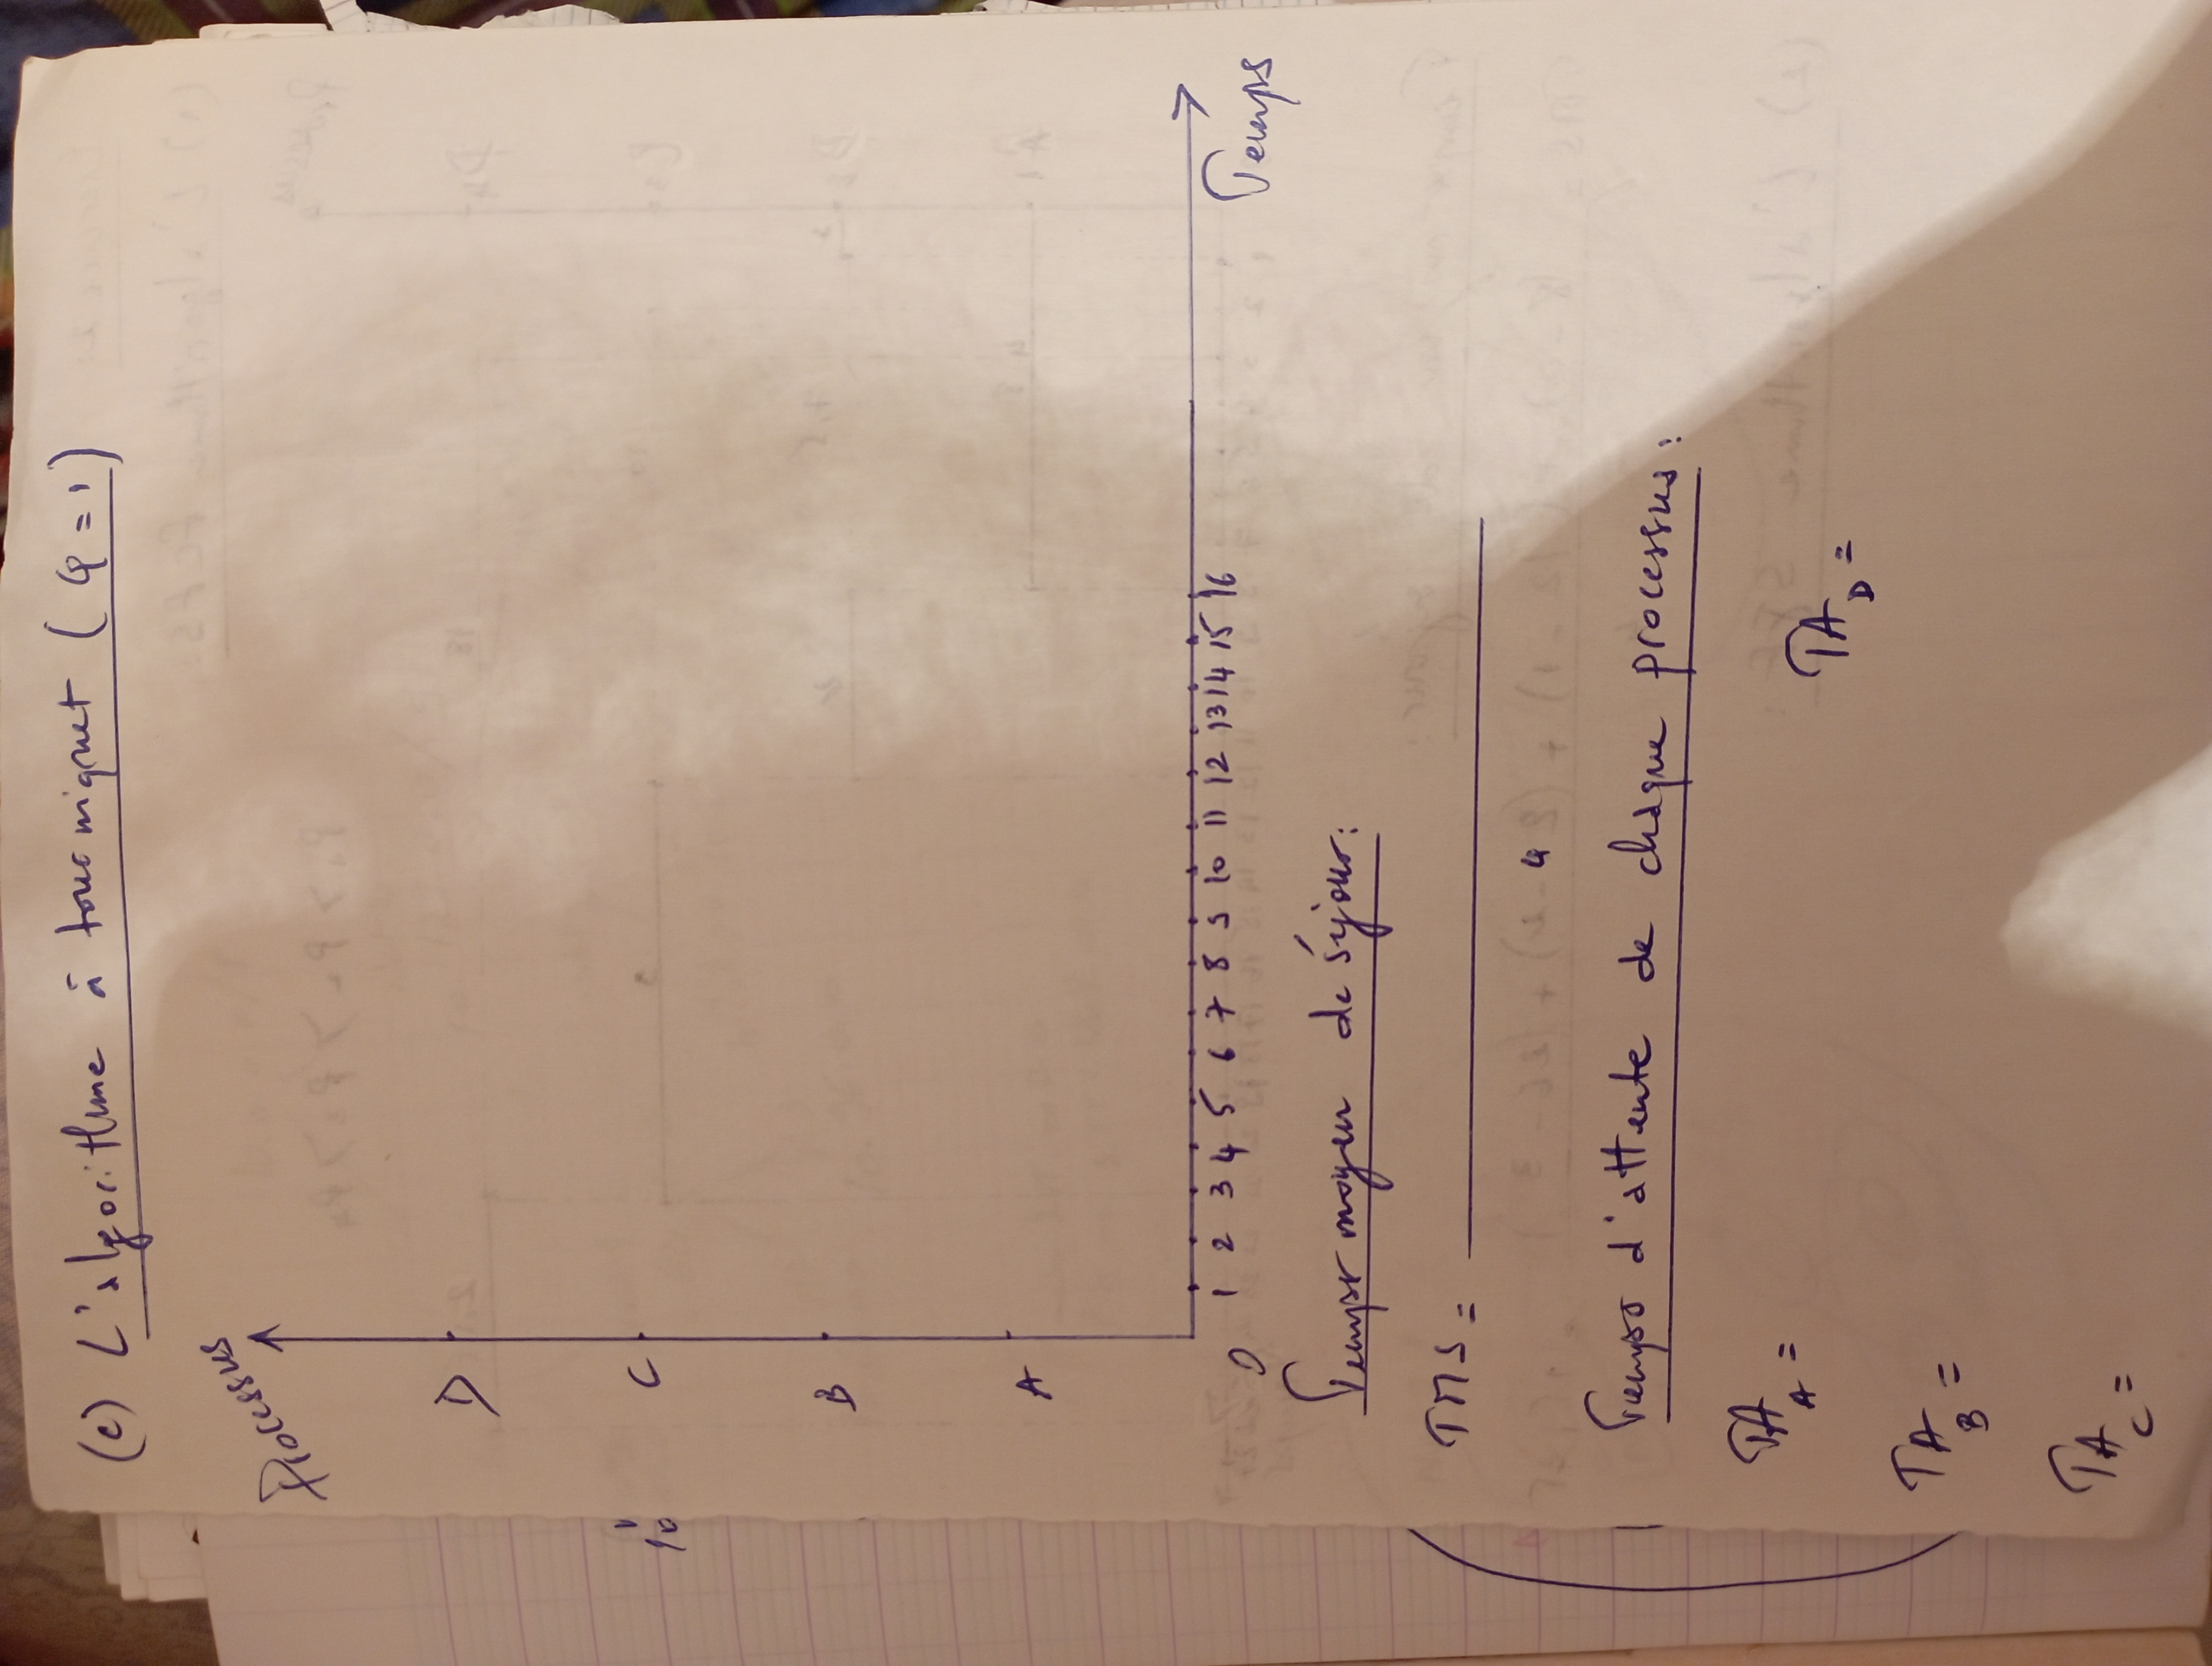 (c) L'algorithme à tourniquet (Q = 1)
Processus
D
C
10
B
A
0 1 2 3 4 5 6 7 8 9 10 11 12 13 14 15 16
Temps
Temps moyen de séjour:
TMS = 
4
Temps d'attente de chaque processus:
TA A =
TA D =
TA B =
TA C =